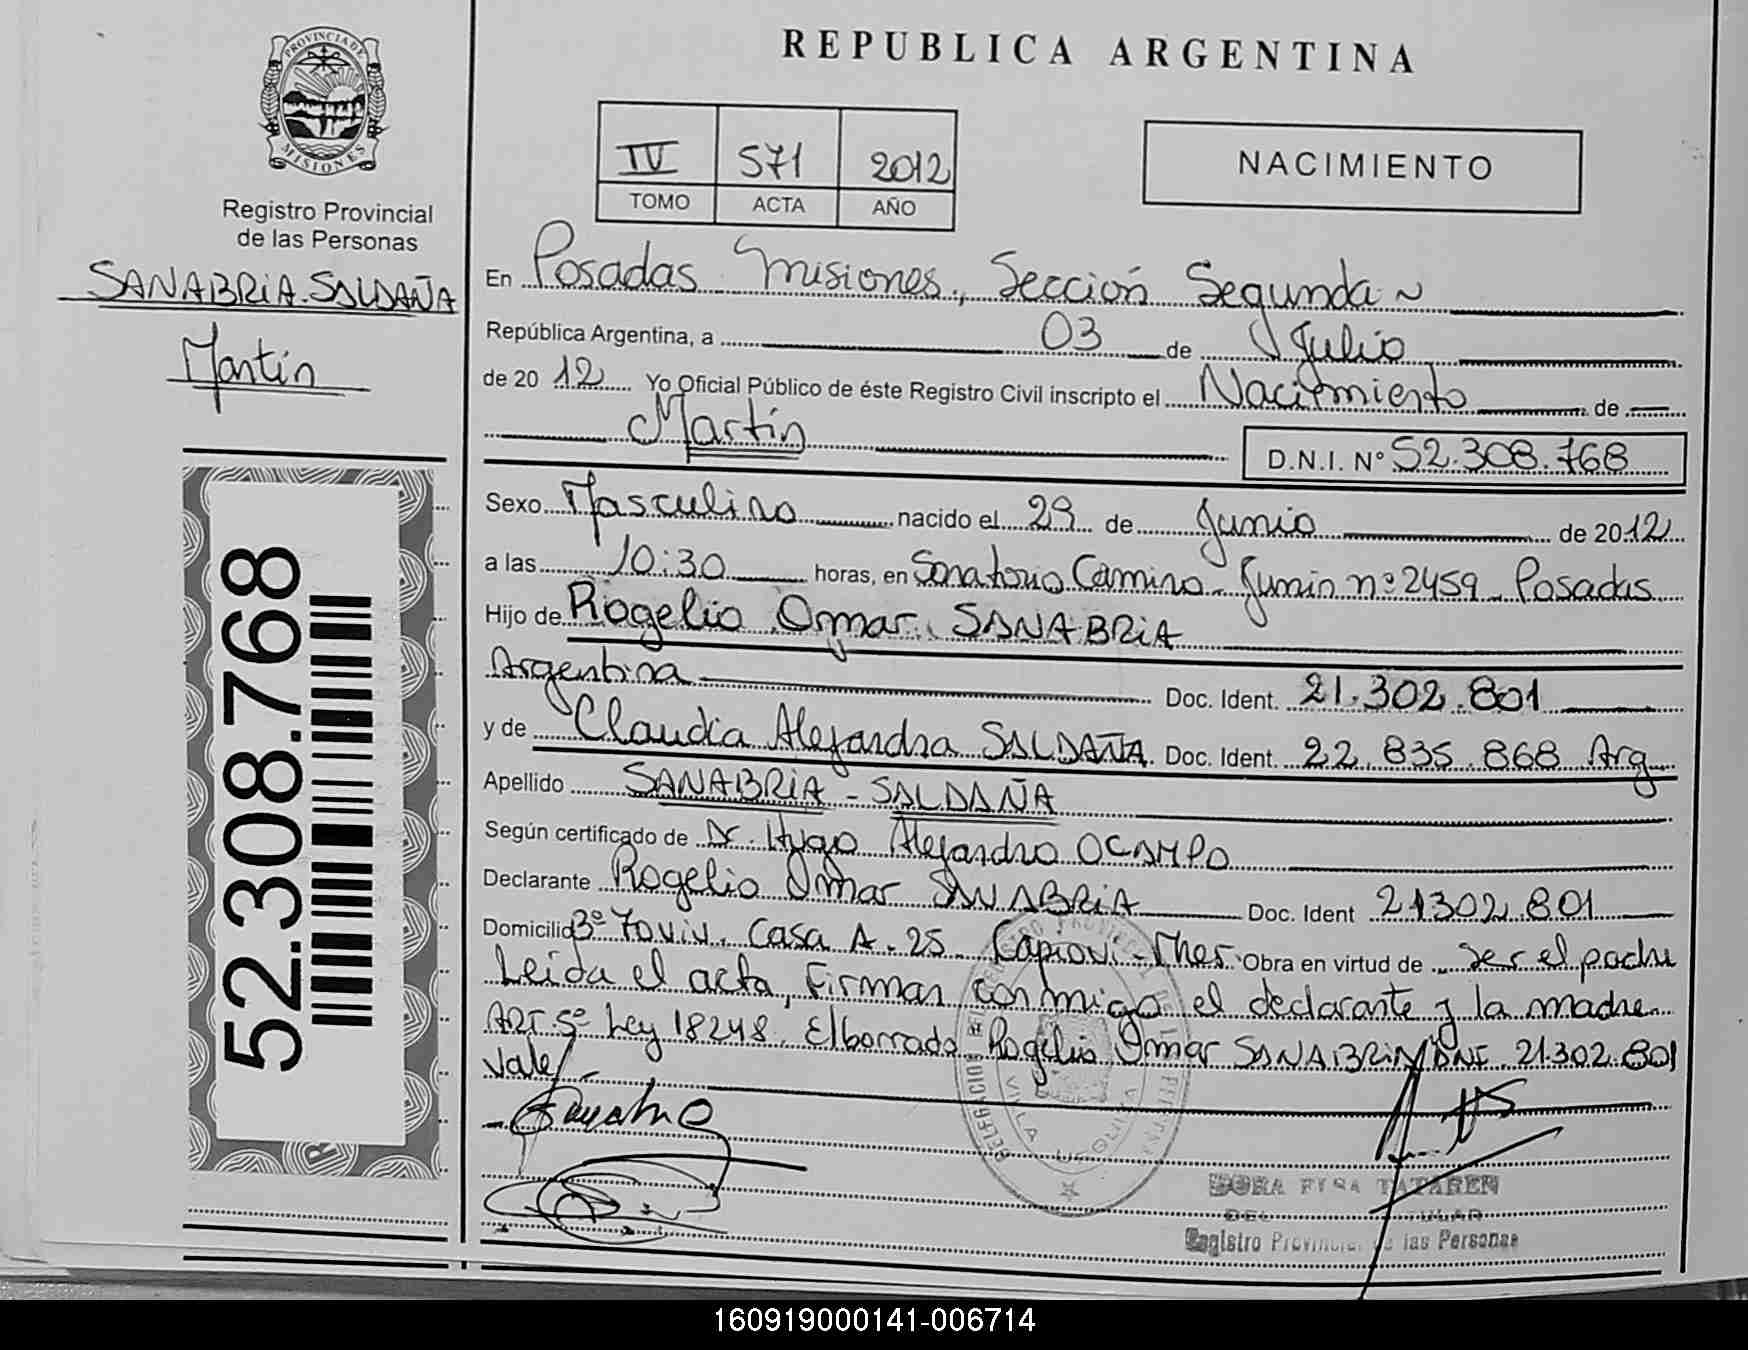 PROVINCIA DE
MISIONES
Registro Provincial
de las Personas
SANABRIA SALDAÑA
Martín
52.308.768
REPUBLICA ARGENTINA
IV 571 2012
TOMO ACTA AÑO
NACIMIENTO
En Posadas Misiones, Sección Segunda
República Argentina, a 03 de Julio
de 2012 Yo Oficial Público de éste Registro Civil inscripto el Nacimiento de
Martín
D.N.I. Nº 52.308.768
Sexo Masculino nacido el 29 de Junio de 2012
a las 10:30 horas, en Sanatorio Camino - Junin nº 2459 - Posadas
Hijo de Rogelio Omar SANABRIA
Argentina Doc. Ident. 21.302.801
y de Claudia Alejandra SALDAÑA Doc. Ident. 22.835.868 Arg
Apellido SANABRIA - SALDAÑA
Según certificado de Dr. Hugo Alejandro OCAMPO
Declarante Rogelio Omar SANABRIA Doc. Ident 21302.801
Domicilio 3º 70 viv. Casa A-25 Capiovi - Mnes. Obra en virtud de ser el padre
Leida el acta, firman conmigo el declarante y la madre
ART. 5º Ley 18248. El borrado Rogelio Omar SANABRIA DNI 21.302.801
Vale
DORA TATAREN
Registro Provincial de las Personas
160919000141-006714